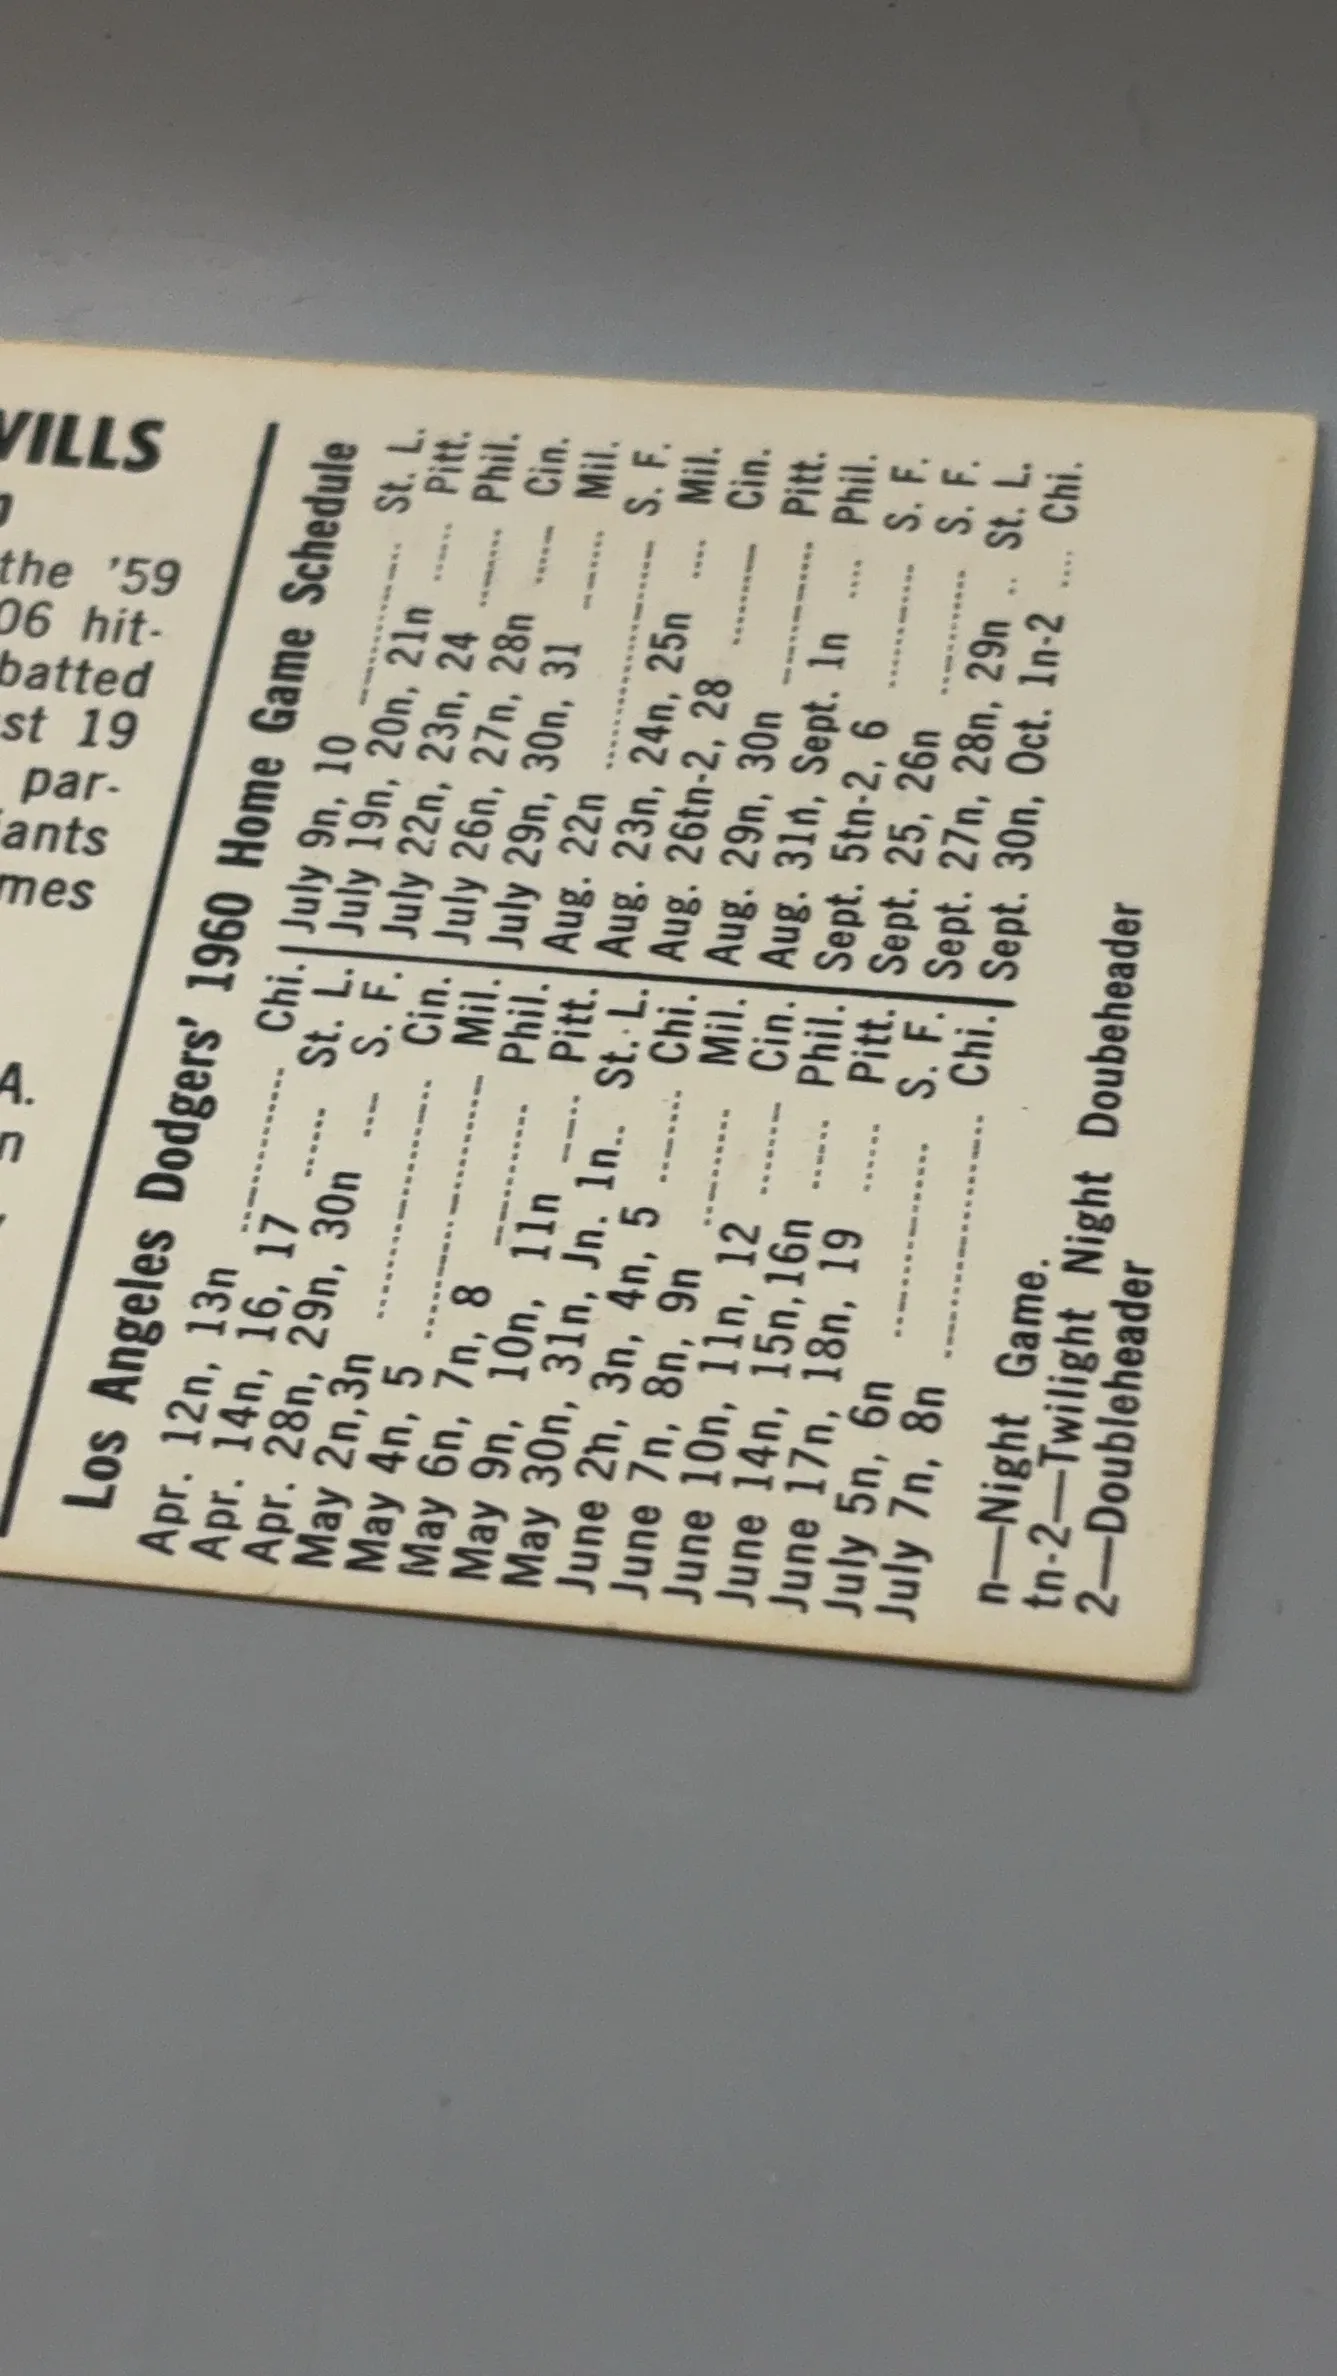 WILLS
the '59
06 hit-
batted
st 19
par-
ants
mes
A.
n
Los Angeles Dodgers' 1960 Home Game Schedule
Apr. 12n, 13n ........ Chi.
Apr. 14n, 16, 17 ...... St. L.
Apr. 28n, 29n, 30n .... S. F.
May 2n,3n ........ Cin.
May 4n, 5 ........ Mil.
May 6n, 7n, 8 ........ Phil.
May 9n, 10n, 11n .... Pitt.
May 30n, 31n, Jn. 1n.. St. L.
June 2n, 3n, 4n, 5 ...... Chi.
June 7n, 8n, 9n ........ Mil.
June 10n, 11n, 12 ...... Cin.
June 14n, 15n,16n ...... Phil.
June 17n, 18n, 19 ...... Pitt.
July 5n, 6n ........ S. F.
July 7n, 8n ........ Chi.
July 9n, 10 ........ St. L.
July 19n, 20n, 21n .... Pitt.
July 22n, 23n, 24 ...... Phil.
July 26n, 27n, 28n .... Cin.
July 29n, 30n, 31 ...... Mil.
Aug. 22n ........ S. F.
Aug. 23n, 24n, 25n .... Mil.
Aug. 26tn-2, 28 ........ Cin.
Aug. 29n, 30n ........ Pitt.
Aug. 31n, Sept. 1n .... Phil.
Sept. 5tn-2, 6 ........ S. F.
Sept. 25, 26n ........ S. F.
Sept. 27n, 28n, 29n .. St. L.
Sept. 30n, Oct. 1n-2 .... Chi.
n—Night Game.
tn-2—Twilight Night Doubeheader
2—Doubleheader